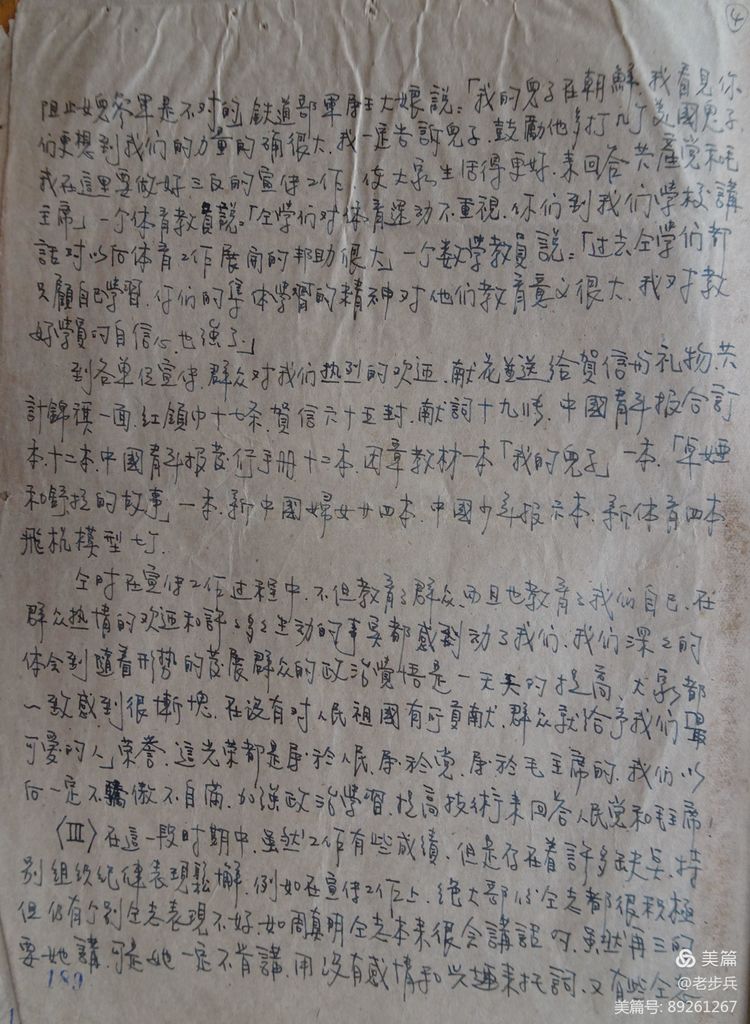 ④
阻止她参軍是不对的,鉄道部軍属王大娘説:「我的兒子在朝鮮,我看見你
们更想到我们的力量的确很大,我一定告訴兒子,鼓勵他多打几个美國鬼子
我在這里要做好三反的宣传工作,使大家生活得更好,来回答共產党和毛
主席」一个体育教員説:「仝学们对体育運动不重視,你们到我们学校講
話对以后体育工作展開的邦助很大」一个数学教員説:「过去仝学们都
只顧自己學習,你们的集体學習的精神对他们教育意义很大,我对教
好学員的自信心也强了」
到各单位宣传,群众对我们热烈的欢迎,献花並送給賀信与礼物,共
計錦旗一面,紅領巾十七条,賀信六十五封,献詞十九張,中國青年报合訂
本十二本,中國青年报發行手册十二本,図章教材一本「我的兒子」一本,「卓婭
和舒拉的故事」一本,新中國婦女廿四本,中國少年报六本,新体育四本
飛机模型七个.
仝时在宣传工作过程中,不但教育了群众而且也教育了我们自己,在
群众热情的欢迎和許許多多生动的事实都感动了我们,我们深深的
体会到随着形势的發展群众的政治覺悟是一天天的提高,大家都
一致感到很慚愧,在没有对人民祖國有何貢献,群众就給予我们最
可愛的人荣誉,這光荣都是属於人民,属於党,属於毛主席的,我们以
后一定不驕傲不自满,加强政治学習,提高技術来回答人民党和毛主席!
〈III〉在這一段时期中,虽然工作有些成績,但是存在着許多缺点,特
别組织紀律表現鬆懈,例如在宣传工作上,绝大部份仝志都很积極
但仍有个别仝志表現不好,如周真明仝志本来很会講話的,虽然再三的
要她講,可是她一定不肯講,用没有感情和兴趣来托詞,又有些仝
189
美篇
@老步兵
美篇号: 89261267